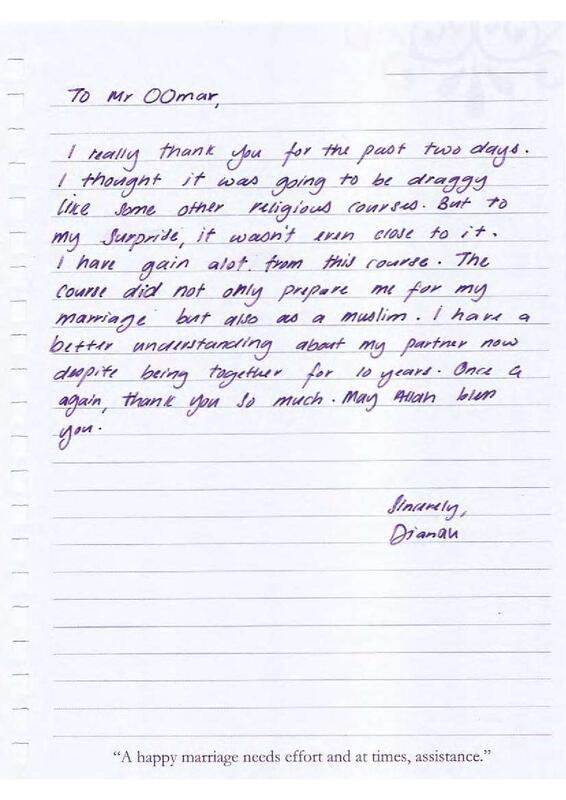 To Mr OOmar,
I really thank you for the past two days.
I thought it was going to be draggy
like some other religious courses. But to
my surprise, it wasn't even close to it.
I have gain alot from this course. The
course did not only prepare me for my
marriage but also as a muslim. I have a
better understanding about my partner now
despite being together for 10 years. Once a
again, thank you so much. May Allah bless
you.
Sincerely,
Dianah
“A happy marriage needs effort and at times, assistance.”